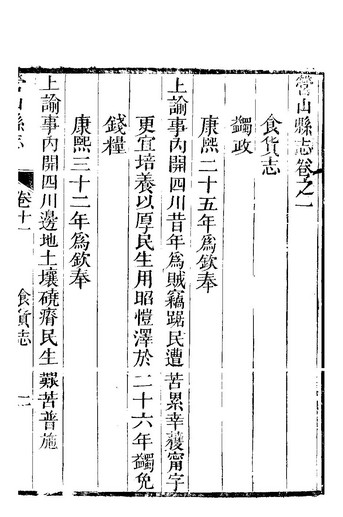 營山縣志卷之一
食貨志
蠲政
康熙二十五年爲欽奉
上諭事內開四川昔年爲賊竊踞民遭苦累幸獲甯宇
更宜培養以厚民生用昭愷澤於二十六年蠲免
錢糧
康熙三十二年爲欽奉
上諭事內開四川邊地土壤磽瘠民生艱苦普施
營山縣志
卷十一
食貨志
一